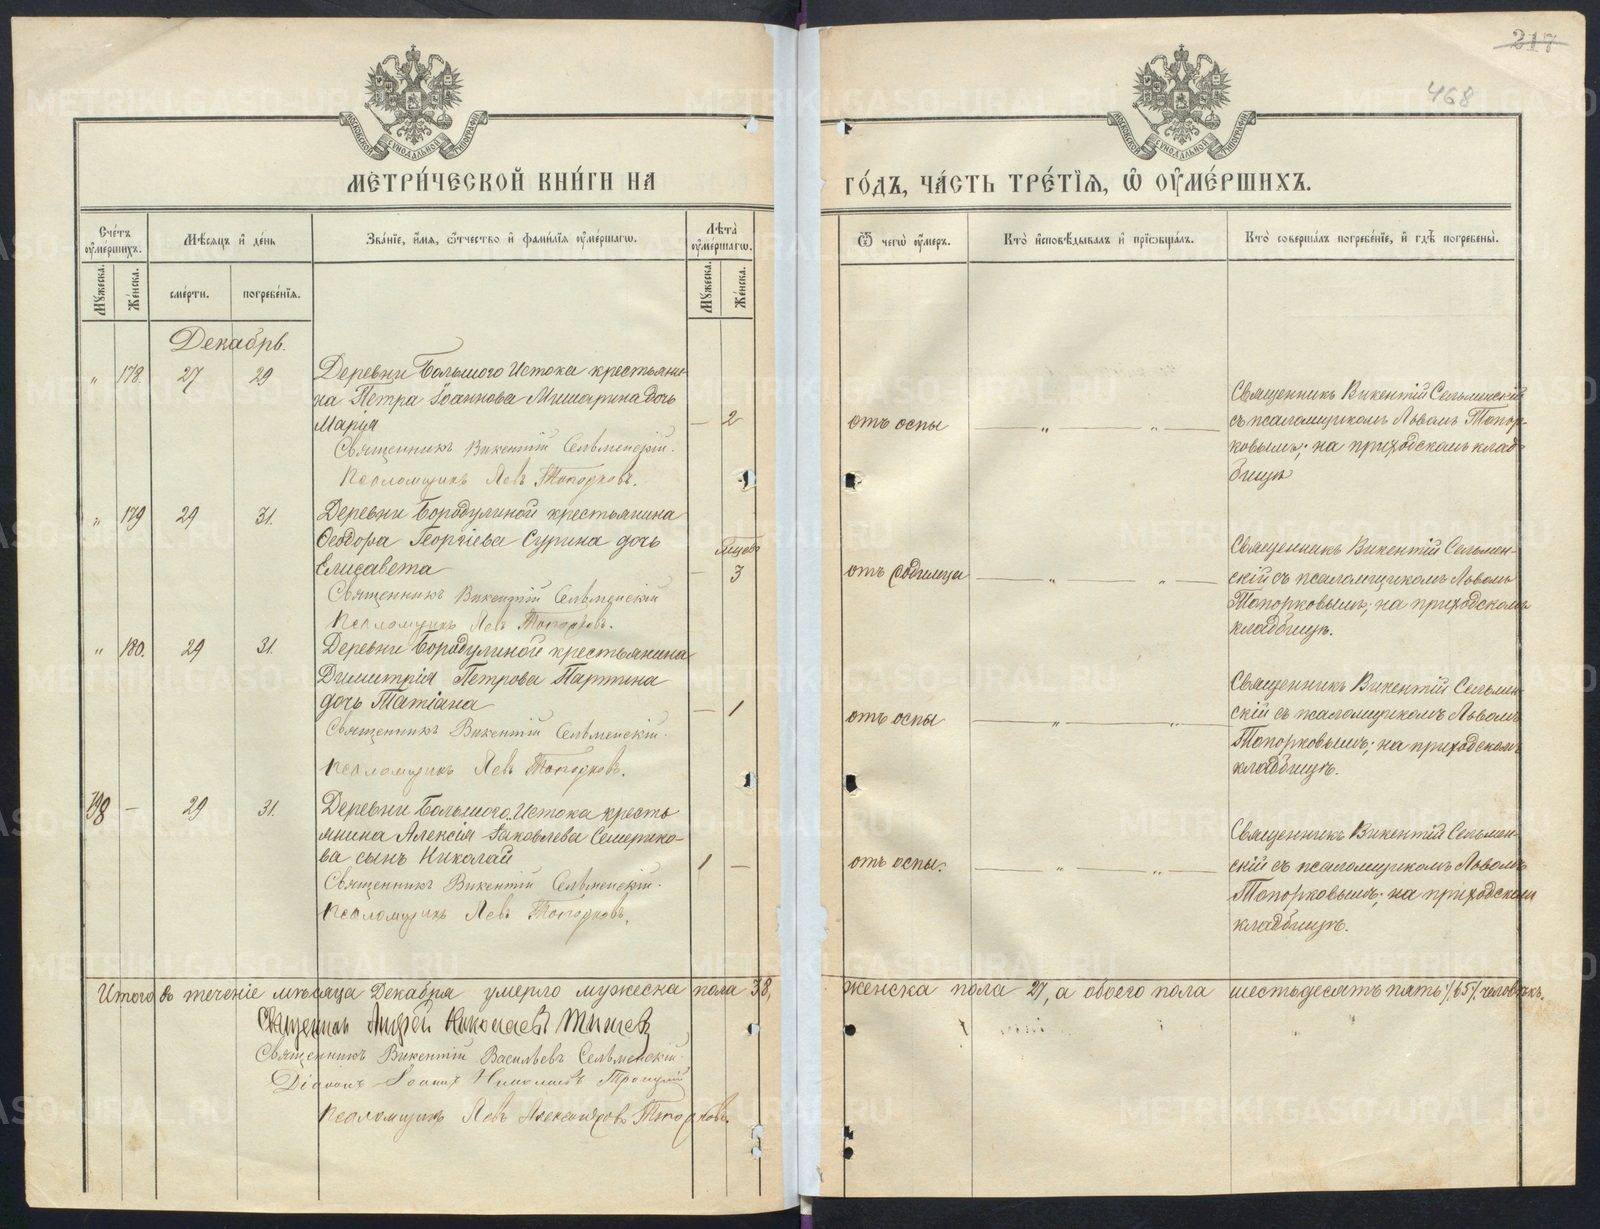 217
468
МОСКОВСКОЙ СѴНОДАЛЬНОЙ ТИПОГРАФІИ
МОСКОВСКОЙ СѴНОДАЛЬНОЙ ТИПОГРАФІИ
МЕТРИ́ЧЕСКОЙ КНИ́ГИ НА
ГО́ДЪ, ЧА́СТЬ ТРЕ́ТІѦ, Ѡ҆ ОУ҆МЕ́РШИХЪ.
Сче́тъ оу҆ме́ршихъ.
Мѣ́сѧцъ и҆ де́нь
Зва́нїе, и҆́мѧ, ѻ҆́тчество и҆ фами́лїѧ оу҆ме́ршагѡ.
Лѣ́та оу҆ме́ршагѡ.
Ѿ чегѡ̀ оу҆́меръ.
Кто̀ и҆сповѣ́дывалъ и҆ прїѡбща́лъ.
Кто̀ соверша́лъ погребе́нїе, и҆ гдѣ̀ погребены̀.
Мꙋ́жеска.
Же́нска.
сме́рти.
погребе́нїѧ.
Мꙋ́жеска.
Же́нска.
Декабрь.
" 178. 27 29 Деревни Большого Истока крестьяни-
на Петра Іоаннова Мишарина дочь
Марія — 2 отъ оспы — " — " —
Священникъ Викентій Сельменскій.
Псаломщикъ Левъ Топорковъ.
Священникъ Викентій Сельменскій
съ псаломщикомъ Львомъ Топор-
ковымъ; на приходскомъ клад-
бищѣ
" 179 29 31. Деревни Бородулиной крестьянина
Ѳеодора Георгіева Сурина дочь
Елисавета — 3 отъ родимца — " — " —
Священникъ Викентій Сельменскій
Псаломщикъ Левъ Топорковъ.
Священникъ Викентій Сельмен-
скій съ псаломщикомъ Львомъ
Топорковымъ; на приходскомъ
кладбищѣ.
" 180. 29 31. Деревни Бородулиной крестьянина
Димитрія Петрова Партина
дочь Татіана — 1 отъ оспы — " — " —
Священникъ Викентій Сельменскій.
Псаломщикъ Левъ Топорковъ.
Священникъ Викентій Сельмен-
скій съ псаломщикомъ Львомъ
Топорковымъ; на приходскомъ
кладбищѣ.
— 29 31. Деревни Большого Истока кресть
янина Алексія Іаковлева Семерико-
ва сынъ Николай 1 — отъ оспы. — " — " —
Священникъ Викентій Сельменскій.
Псаломщикъ Левъ Топорковъ.
Священникъ Викентій Сельмен-
скій съ псаломщикомъ Львомъ
Топорковымъ; на приходскомъ
кладбищѣ.
Итого въ теченіе мѣсяца Декабря умерло мужеска пола 38, женска пола 27, а обоего пола шестьдесятъ пять /65/ человѣкъ.
Священникъ Андрей Николаевъ
Священникъ Викентій Васильевъ Сельменскій.
Діаконъ Іоаннъ Николаевъ Троицкій
Псаломщикъ Левъ Александровъ Топорковъ.
METRIKI.GASO-URAL.RU